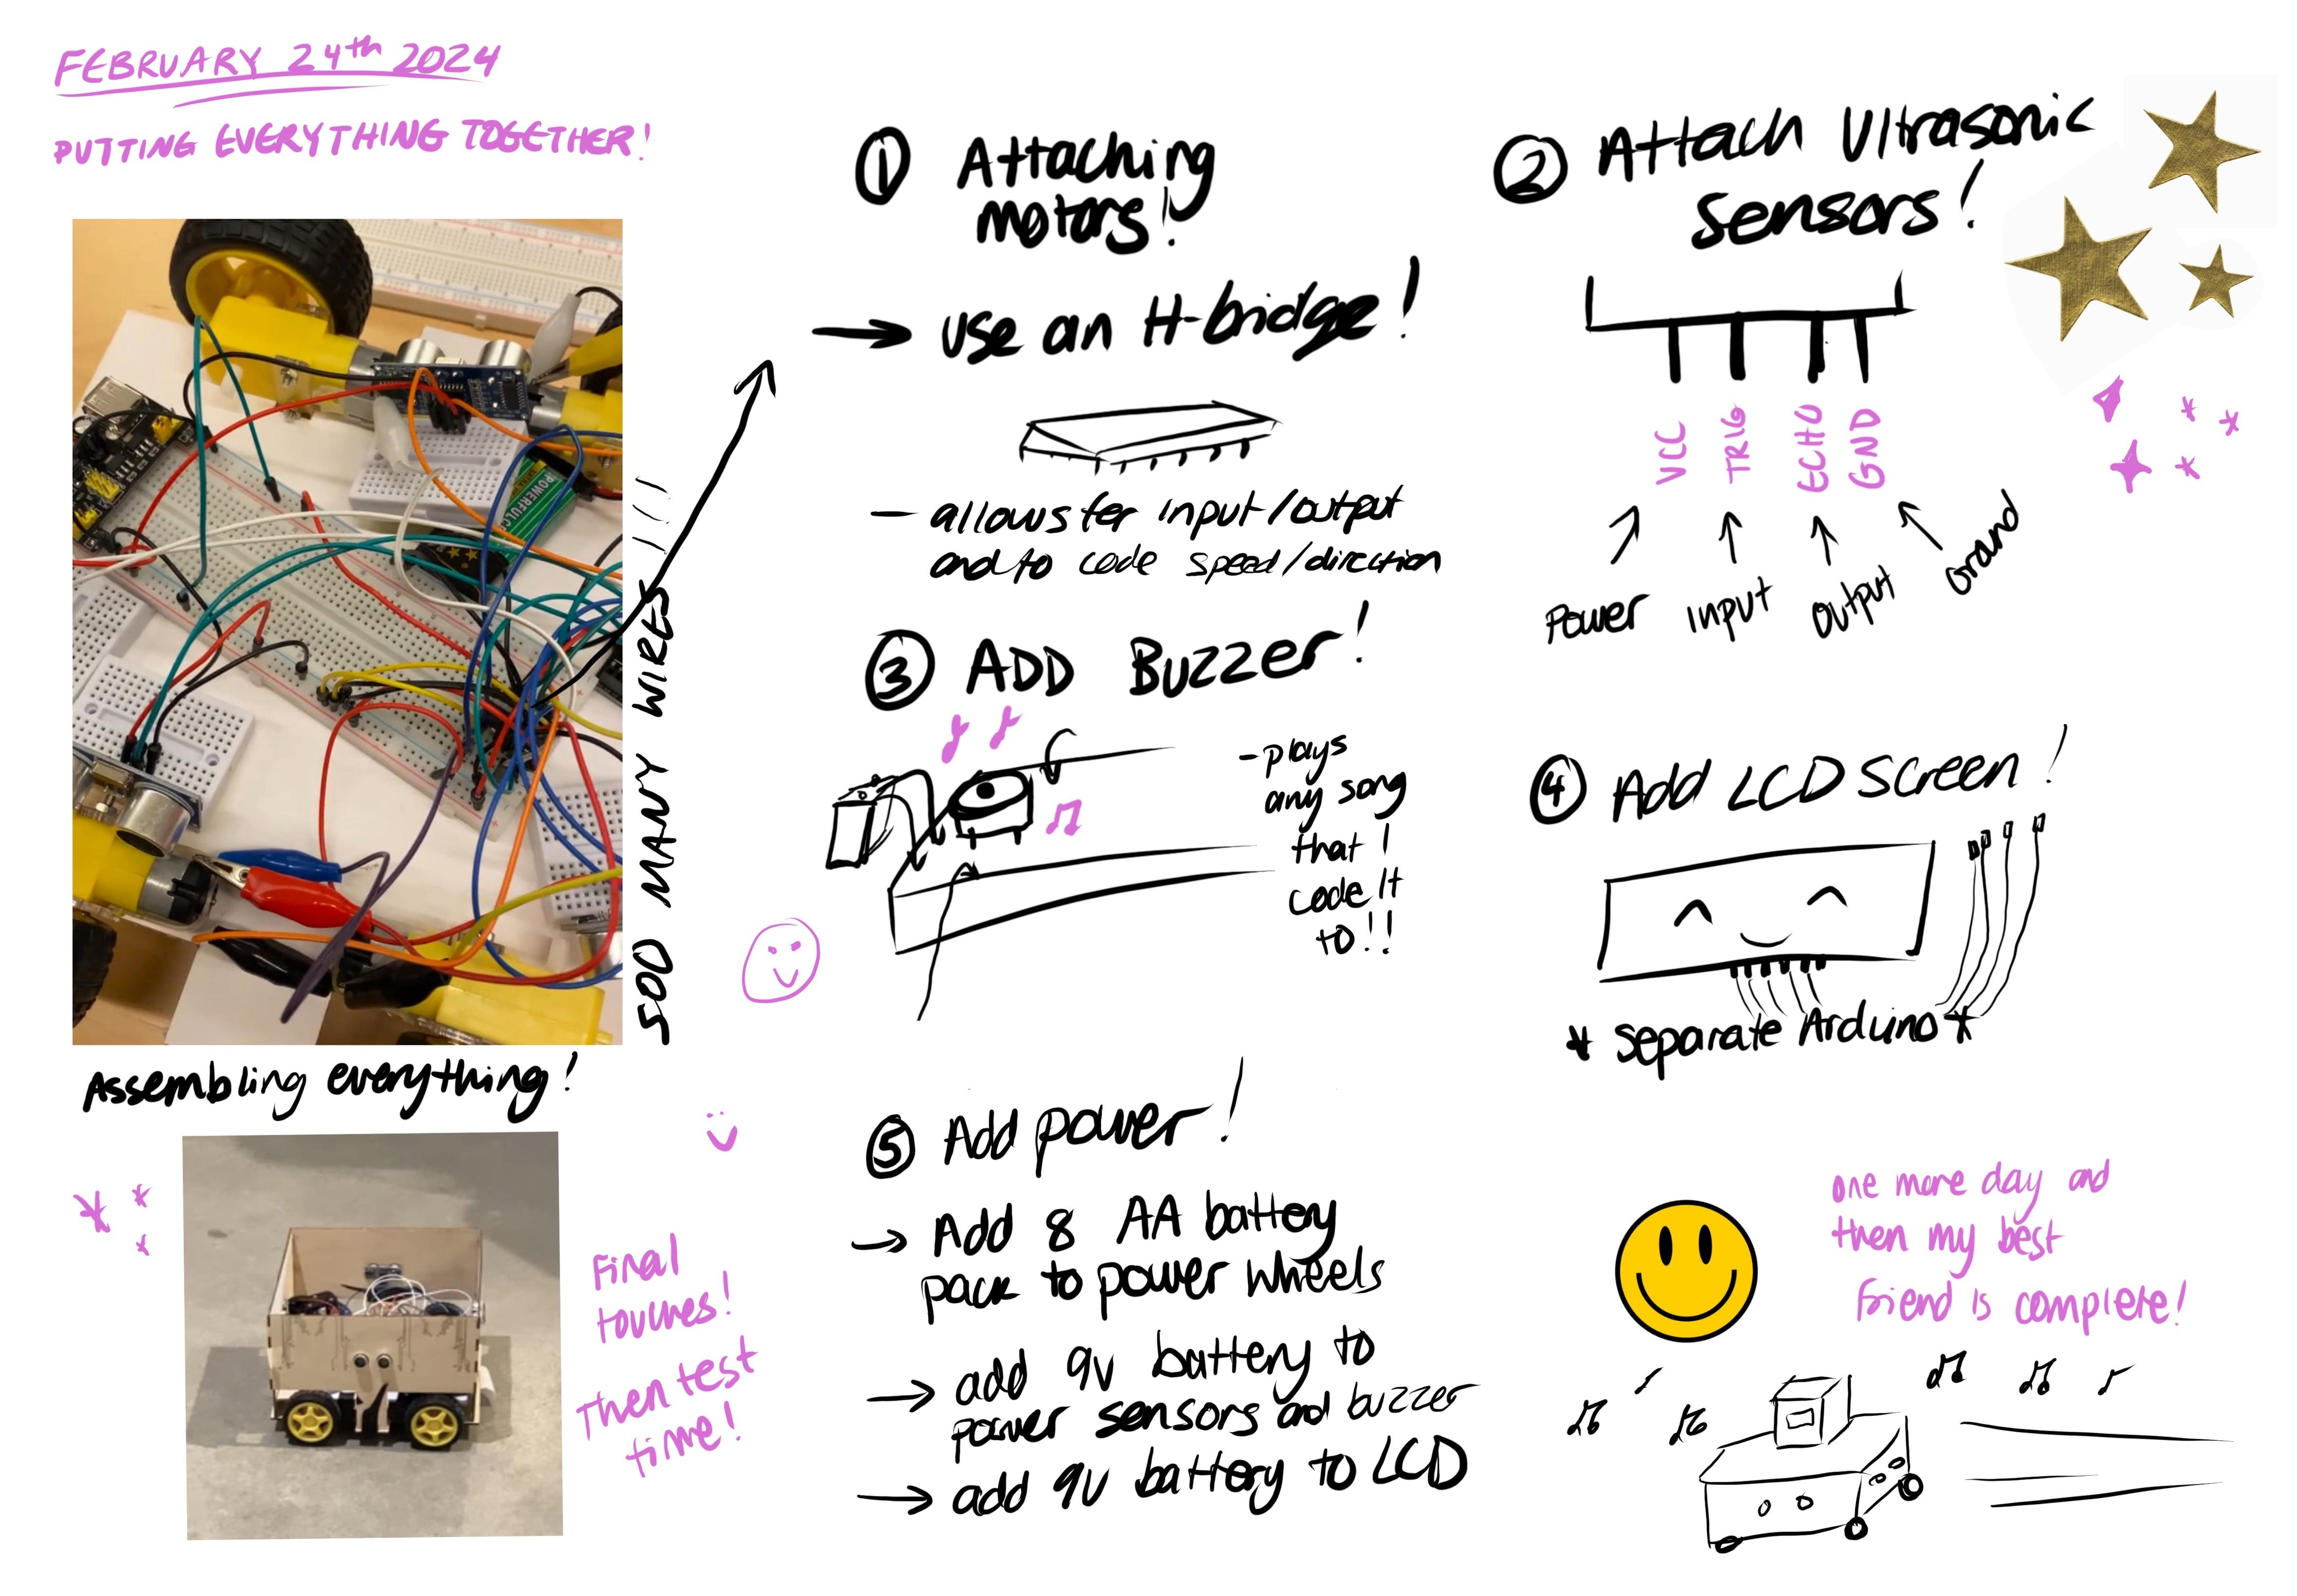 FEBRUARY 24th 2024
PUTTING EVERYTHING TOGETHER!
SOO MANY WIRES!!!
POWERFUL
Assembling everything!
Final
touches!
Then test
time!
① Attaching
motors!
→ use an H-bridge!
- allows for input/output
and to code speed/direction
② Attach Ultrasonic
Sensors!
VCC TRIG ECHO GND
Power Input Output Grand
③ ADD Buzzer!
- plays
any song
that I
code it
to!!
④ Add LCD Screen!
* Separate Arduino *
⑤ Add power!
→ Add 8 AA battery
pack to power wheels
→ add 9v battery to
power sensors and buzzer
→ add 9v battery to LCD
one more day and
then my best
friend is complete!